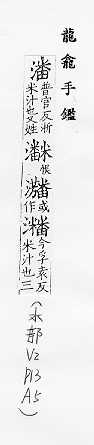 龍龕手鑑
潘普官反淅米汁也又姓 俗 或作 今孚袁反米汁也三
(水部V2 P13 A5)